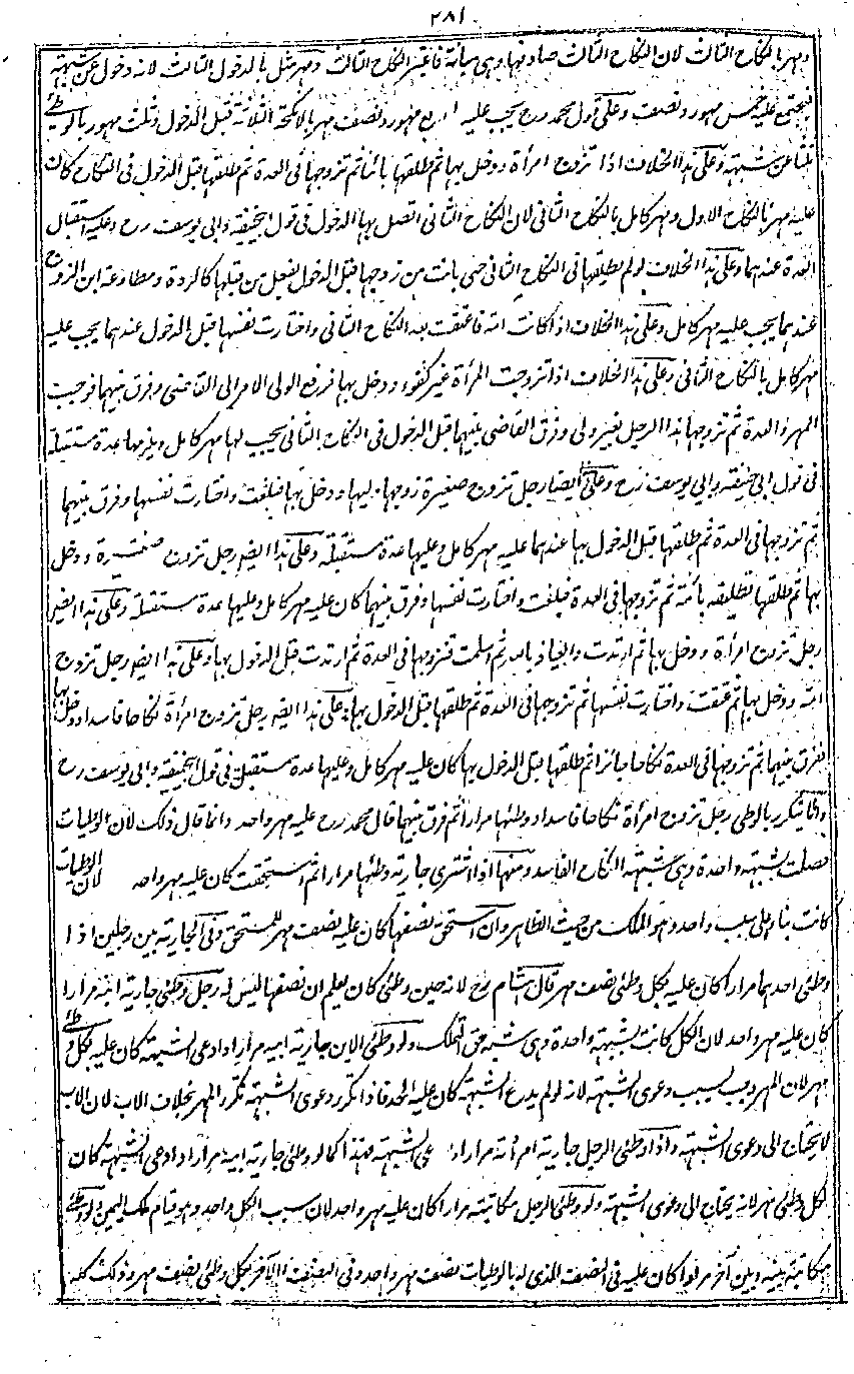 ٢٨١
ومهر بالنكاح الثالث لان النكاح الثالث صادفها وهى مبانة فاعتبر النكاح الثالث ومهر مثل بالدخول الثالث لانه دخول عن شبهة
فيجتمع عليه خمس مهور ونصف وعلى قول محمد رح يجب عليه اربع مهور ونصف مهر بالانكحة الثلاثة قبل الدخول وثلث مهور بالوطئ
ثلثا عن شبهة وعلى هذا الخلاف اذا تزوج امرأة ودخل بها ثم طلقها بائنا ثم تزوجها فى العدة ثم طلقها قبل الدخول فى النكاح كان
عليه مهر بالنكاح الاول ومهر كامل بالنكاح الثانى لان النكاح الثانى اتصل بها الدخول فى قول ابيحنيفة وابى يوسف رح وعليه استقبال
العدة عندهما وعلى هذا الخلاف لو لم يطلقها فى النكاح الثانى حتى بانت من زوجها قبل الدخول بفعل من قبلها كالردة ومطاوعة ابن الزوج
عندهما يجب عليه مهر كامل وعلى هذا الخلاف اذا كانت امة فاعتقت بعد النكاح الثانى واختارت نفسها قبل الدخول عندهما يجب عليه
مهر كامل بالنكاح الثانى وعلى هذا الخلاف اذا تزوجت المرأة غير كفوء ودخل بها فرفع الولى الامر الى القاضى وفرق بينهما فوجب
المهر والعدة ثم تزوجها هذا الرجل بغير ولى وفرق القاضى بينهما قبل الدخول فى النكاح الثانى يجب لها مهر كامل ويلزمها عدة مستقبلة
فى قول ابى حنيفة وابى يوسف رح وعلى ايضا رجل تزوج صغيرة زوجها وليها ودخل بها فبلغت واختارت نفسها وفرق بينهما
ثم تزوجها فى العدة ثم طلقها قبل الدخول بها عندهما عليه مهر كامل وعليها عدة مستقبلة وعلى هذا ايضا رجل تزوج صغيرة ودخل
بها ثم طلقها تطليقة بائنة ثم تزوجها فى العدة فبلغت واختارت نفسها وفرق بينهما كان عليه مهر كامل وعليها عدة مستقبلة وعلى هذا ايضا
رجل تزوج امرأة ودخل بها ثم ارتدت والعياذ بالله ثم اسلمت فتزوجها فى العدة ثم ارتدت قبل الدخول بها وعلى هذا ايضا رجل تزوج
امة ودخل بها ثم عتقت واختارت نفسها ثم تزوجها فى العدة ثم طلقها قبل الدخول بها وعلى هذا ايضا رجل تزوج امرأة نكاحا فاسدا ودخل بها
ففرق بينهما ثم تزوجها فى العدة نكاحا جائزا ثم طلقها قبل الدخول بها كان عليه مهر كامل وعليها عدة مستقبلة فى قول ابيحنيفة وابى يوسف رح
يتكرر بالوطى رجل تزوج امرأة نكاحا فاسدا ووطئها مرارا ثم فرق بينهما قال محمد رح عليه مهر واحد وانما قال ذلك لان الوطيات
حصلت بشبهة واحدة وهى شبهة النكاح الفاسد ومنها اذا اشترى جارية ووطئها مرارا ثم استحقت كان عليه مهر واحد لان الوطيات
كانت بناء على سبب واحد وهو الملك من حيث الظاهر وان استحق نصفها كان عليه نصف مهر للمستحق وفى الجارية بين رجلين اذا
وطئ احدهما مرارا كان عليه بكل وطئ نصف مهر قال هشام رح لانه حين وطئ كان يعلم ان نصفها ليس له رجل وطئ جارية ابنه مرارا
كان عليه مهر واحد لان الكل كانت بشبهة واحدة وهى شبهة حق التملك ولو وطئ الابن جارية ابيه مرارا وادعى الشبهة كان عليه بكل وطئ
مهر لان المهر وجب بسبب دعوى الشبهة لانه لو لم يدع الشبهة كان عليه الحد فاذا تكرر دعوى الشبهة تكرر المهر بخلاف الاب لان الاب
لا يحتاج الى دعوى الشبهة واذا وطئ الرجل جارية امرأته مرارا وادعى الشبهة فهذا كما لو وطئ جارية ابيه مرارا وادعى الشبهة كان
لكل وطئ مهر لانه يحتاج الى دعوى الشبهة ولو وطئ الرجل مكاتبته مرارا كان عليه مهر واحد لان سبب الكل واحد وهو قيام ملك اليمين ولو وطئ
مكاتبة بينه وبين آخر مرارا كان عليه فى النصف الذى له بالوطيات نصف مهر واحد وفى النصف الآخر بكل وطئ نصف مهر وذلك كله